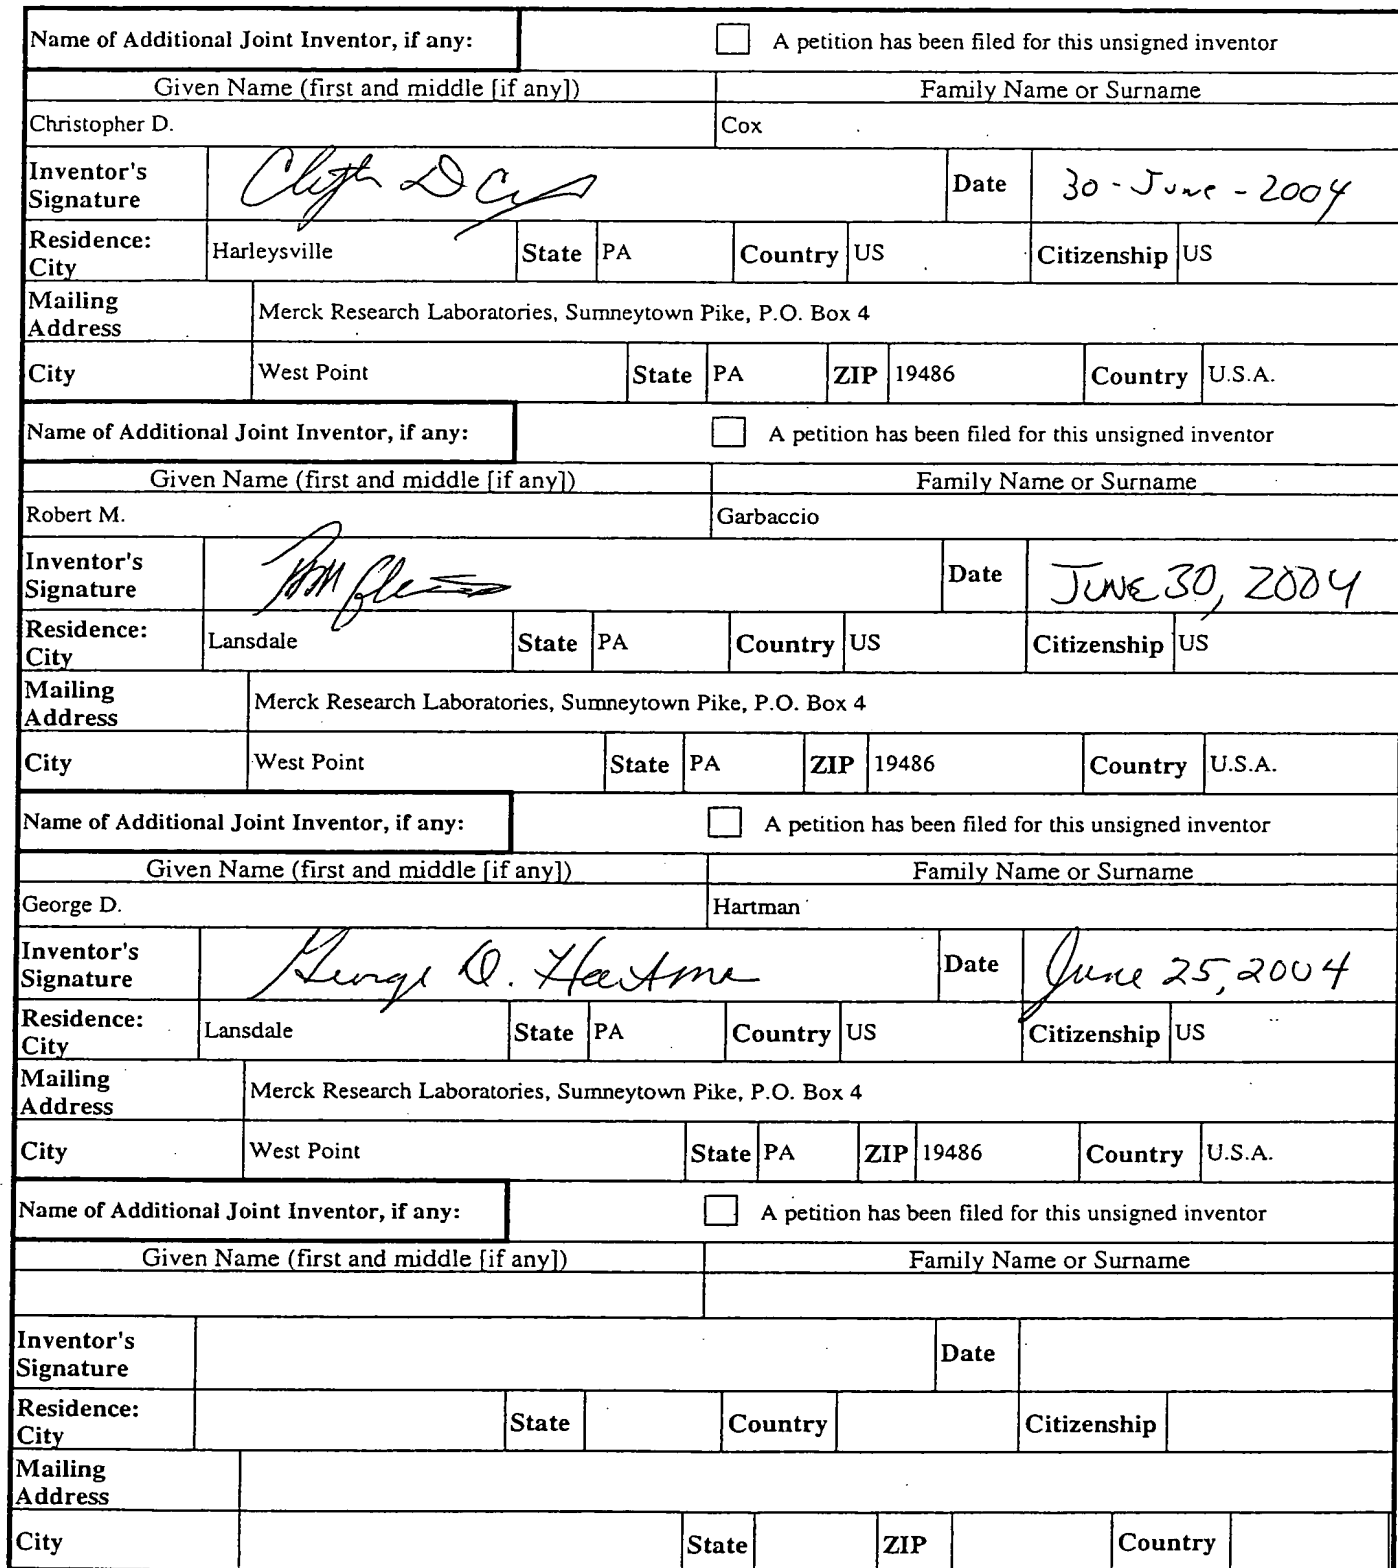 Name of Additional Joint Inventor, if any: A petition has been filed for this unsigned inventor
Given Name (first and middle [if any]) Family Name or Surname
Christopher D. Cox
Inventor's Signature Date 30-June-2004
Residence: City Harleysville State PA Country US Citizenship US
Mailing Address Merck Research Laboratories, Sumneytown Pike, P.O. Box 4
City West Point State PA ZIP 19486 Country U.S.A.
Name of Additional Joint Inventor, if any: A petition has been filed for this unsigned inventor
Given Name (first and middle [if any]) Family Name or Surname
Robert M. Garbaccio
Inventor's Signature Date JUNE 30, 2004
Residence: City Lansdale State PA Country US Citizenship US
Mailing Address Merck Research Laboratories, Sumneytown Pike, P.O. Box 4
City West Point State PA ZIP 19486 Country U.S.A.
Name of Additional Joint Inventor, if any: A petition has been filed for this unsigned inventor
Given Name (first and middle [if any]) Family Name or Surname
George D. Hartman
Inventor's Signature George D. Hartman Date June 25, 2004
Residence: City Lansdale State PA Country US Citizenship US
Mailing Address Merck Research Laboratories, Sumneytown Pike, P.O. Box 4
City West Point State PA ZIP 19486 Country U.S.A.
Name of Additional Joint Inventor, if any: A petition has been filed for this unsigned inventor
Given Name (first and middle [if any]) Family Name or Surname
Inventor's Signature Date
Residence: City State Country Citizenship
Mailing Address
City State ZIP Country